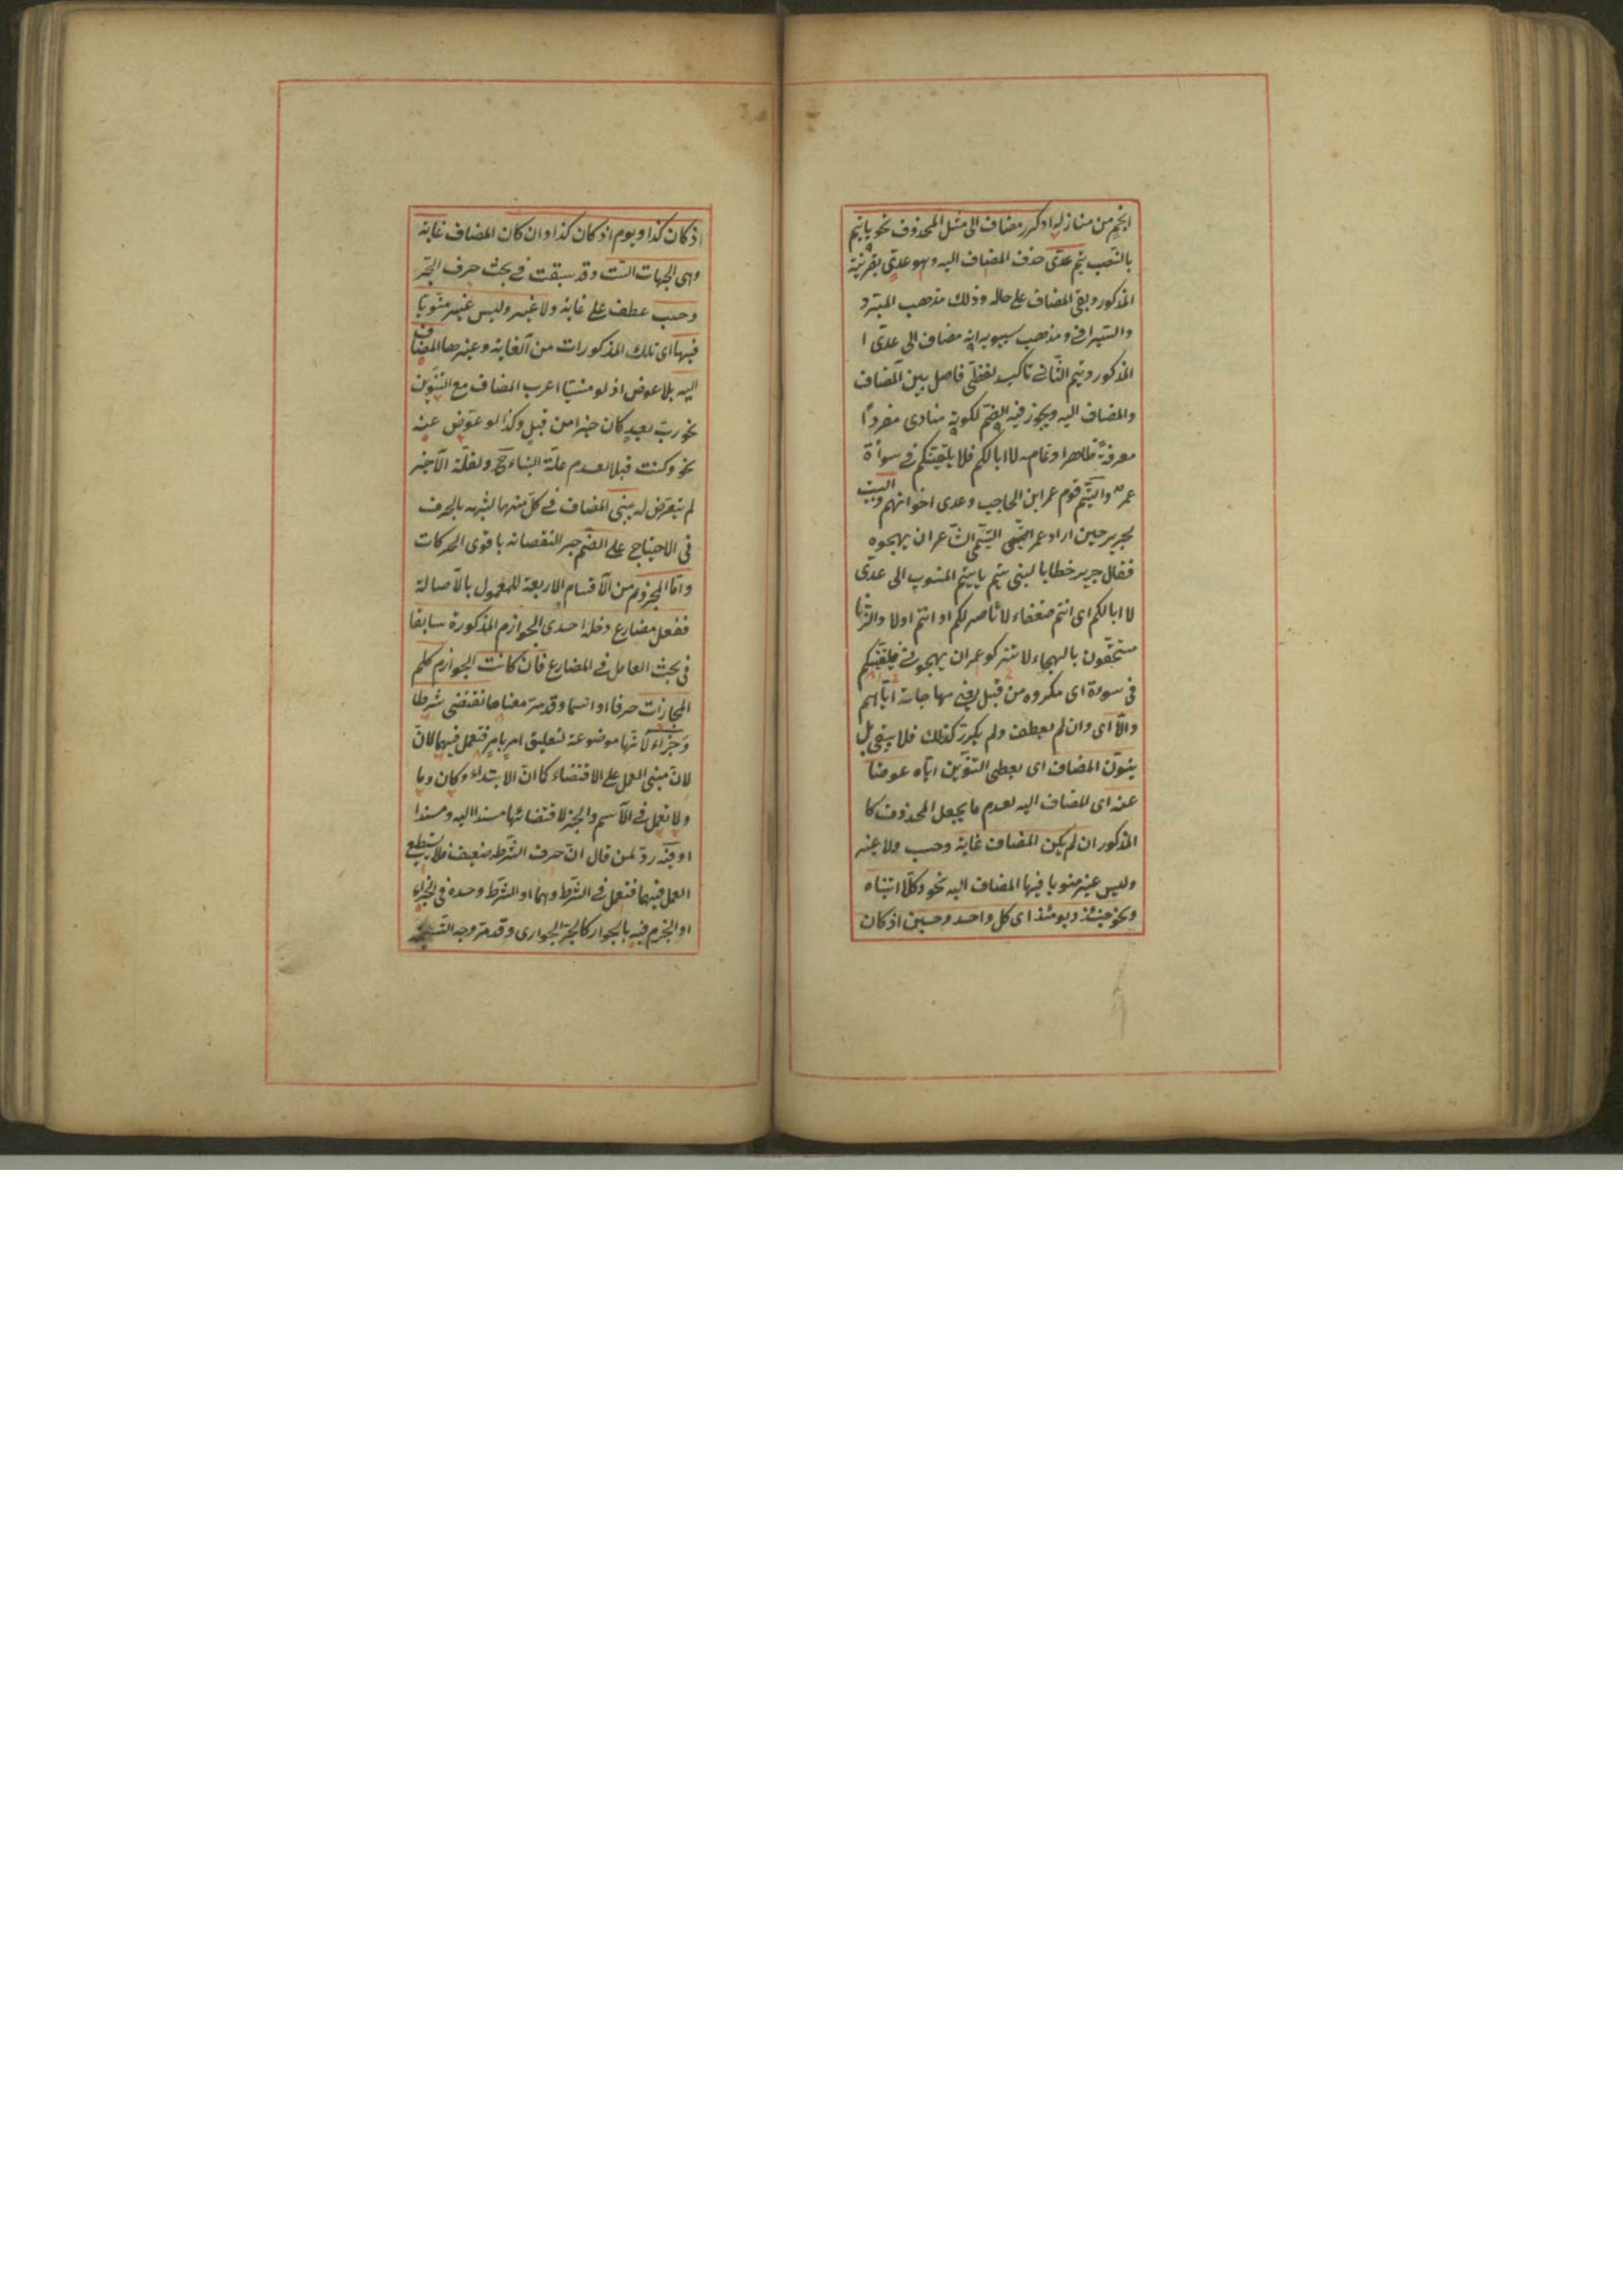 انجم من منازله او كرر مضاف الى مثل المحذوف نحو يا تيم
بالنصب تيم عدى حذف المضاف اليه وهو عدى بقرينة
المذكور وبقى المضاف على حاله وذلك مذهب المبرد
والسيرافى ومذهب سيبويه انه مضاف الى عدى ا
المذكور وتيم الثانى تاكيد لفظى فاصل بين المضاف
والمضاف اليه ويجوز فيه الضم لكونه منادى مفردا
معرفة ظاهرا وتمامه لا ابا لكم فلا يلقينكم فى سوأة
عمر والتيم قوم عمر ابن الحاجب وعدى اخوانهم والبيت
لجرير حين اراد عمر التيمى الشاعر ان يهجوه
فقال جرير خطابا لبنى تيم يا تيم المنسوب الى عدى
لا ابا لكم اى انتم ضعفاء لا ناصر لكم او انتم اولاد الزنا
مستحقون بالهجاء لا تتركو عمر ان يهجونى فيلقينكم
فى سوءة اى مكروه من قبل فى مهاجاته اياهم
والا اى وان لم يعطف ولم يكرر كذلك فلا يبقى بل
ينون المضاف اى يعطى التنوين اياه عوضا
عنه اى المضاف اليه لعدم ما يجعل المحذوف كا
المذكور ان لم يكن المضاف غاية وحسب ولا غير
وليس غير منويا فيها المضاف اليه نحو وكلا اتيناه
ونحو حينئذ ويومئذ اى كل واحد وحين اذ كان
اذ كان كذا ويوم اذ كان كذا وان كان المضاف غاية
وهى الجهات الست وقد سبقت فى بحث حرف الجر
وحسب عطف على غاية ولا غير وليس غير منويا
فيها اى تلك المذكورات من الغاية وغيرها المضاف
اليه بلا عوض اذ لو منسيا اعرب المضاف مع التنوين
نحو رب بعد كان خيرا من قبل وكذا لو عوض عنه
نحو وكنت قبلا لعدم علة البناء ح ولقلة الاخير
لم يتعرض له يبنى المضاف فى كل منها لشبهه بالحرف
فى الاحتياج على الضم جبر النقصانه باقوى الحركات
واما المجزوم من الاقسام الاربعة للمعمول بالاصالة
ففعل مضارع دخله احدى الجوازم المذكورة سابقا
فى بحث العامل فى المضارع فان كانت الجوازم كلم
المجازات حرفا او اسما وقد مر معناها تقتضى شرطا
وجزاء لانها موضوعة لتعليق امر بامر فتعمل فيهما لان
لان مبنى العمل على الاقتضاء كما ان الابتداء وكان وما
ولا تعمل فى الاسم والخبر لاقتضائها مسندا اليه ومسندا
او فيه رد لمن قال ان حرف الشرط ضعيف فلا يستطع
العمل فيهما فتعمل فى الشرط وهما او الشرط وحده فى الجزاء
او الجزم فيه بالجوار كالجر الجوارى وقد مر وجه